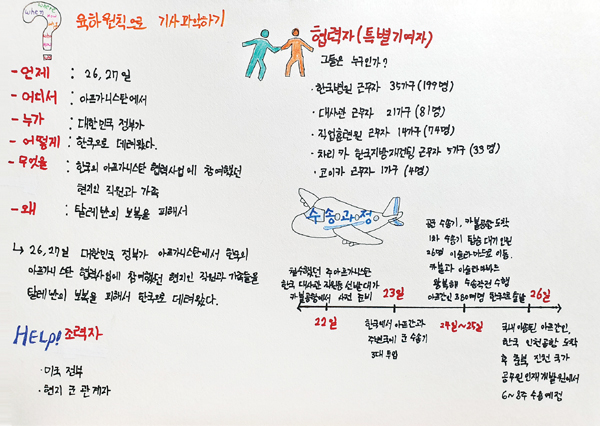 where
when
육하원칙으로 기사파악하기
- 언제 : 26, 27일
- 어디서 : 아프가니스탄에서
- 누가 : 대한민국 정부가
- 어떻게 : 한국으로 데려왔다.
- 무엇을 : 한국의 아프가니스탄 협력사업에 참여했던
현지인 직원과 가족
- 왜 : 탈레반의 보복을 피해서
↳ 26, 27일 대한민국 정부가 아프가니스탄에서 한국의
아프가니스탄 협력사업에 참여했던 현지인 직원과 가족들을
탈레반의 보복을 피해서 한국으로 데려왔다.
HELP! 조력자
· 미국 정부
· 현지 군 관계자
협력자 (특별기여자)
그들은 누구인가?
· 한국병원 근무자 35가구 (199명)
· 대사관 근무자 21가구 (81명)
· 직업훈련원 근무자 14가구 (74명)
· 차리카 한국지방재건팀 근무자 5가구 (33명)
· 코이카 근무자 1가구 (4명)
수송과정
철수했던 주아프가니스탄
한국 대사관 직원등 선발대가
카불공항에서 사전 준비
22일
23일
한국에서 아프간과
주변국에 군 수송기
3대 투입
공군 수송기, 카불공항 도착
1차 수송기 탑승 대기 인원
26명 이슬라마바드로 이동.
카불과 이슬라마바드
왕복해 수송작전 수행
아프간인 380여명 한국으로 출발
24일~25일
26일
국내 이송된 아프간인,
한국 인천공항 도착
후 충북 진천 국가
공무원 인재개발원에서
6~8주 수용예정